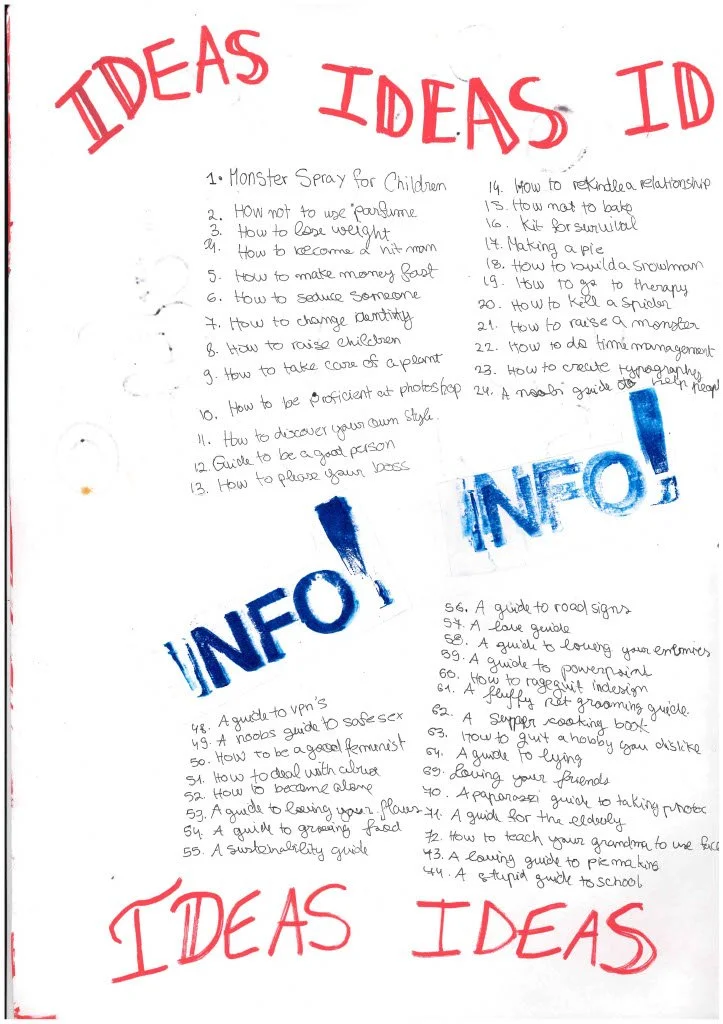 IDEAS IDEAS ID
1. Monster Spray for Children
2. How not to use parfume
3. How to lose weight
4. How to become a hit man
5. How to make money fast
6. How to seduce someone
7. How to change identity
8. How to raise children
9. How to take care of a plant
10. How to be proficient at photoshop
11. How to discover your own style
12. Guide to be a good person
13. How to please your boss
14. How to rekindle a relationship
15. How not to bake
16. Kit for survival
17. Making a pie
18. How to build a snowman
19. How to go to therapy
20. How to kill a spider
21. How to raise a monster
22. How to do time management
23. How to create typography
24. A noobs guide to help peopl
INFO!
INFO!
48. A guide to vpn's
49. A noobs guide to safe sex
50. How to be a good feminist
51. How to deal with abuse
52. How to become alone
53. A guide to loving your flaws
54. A guide to growing food
55. A sustainability guide
56. A guide to road signs
57. A love guide
58. A guide to loving your enemies
59. A guide to powerpoint
60. How to ragequit indesign
61. A fluffy pet grooming guide
62. A supper cooking book
63. How to quit a hobby you dislike
64. A guide to lying
69. Loving your friends
70. A paparazzi guide to taking photos
71. A guide for the elderly
72. How to teach your grandma to use face
43. A loving guide to pie making
44. A stupid guide to school
IDEAS IDEAS